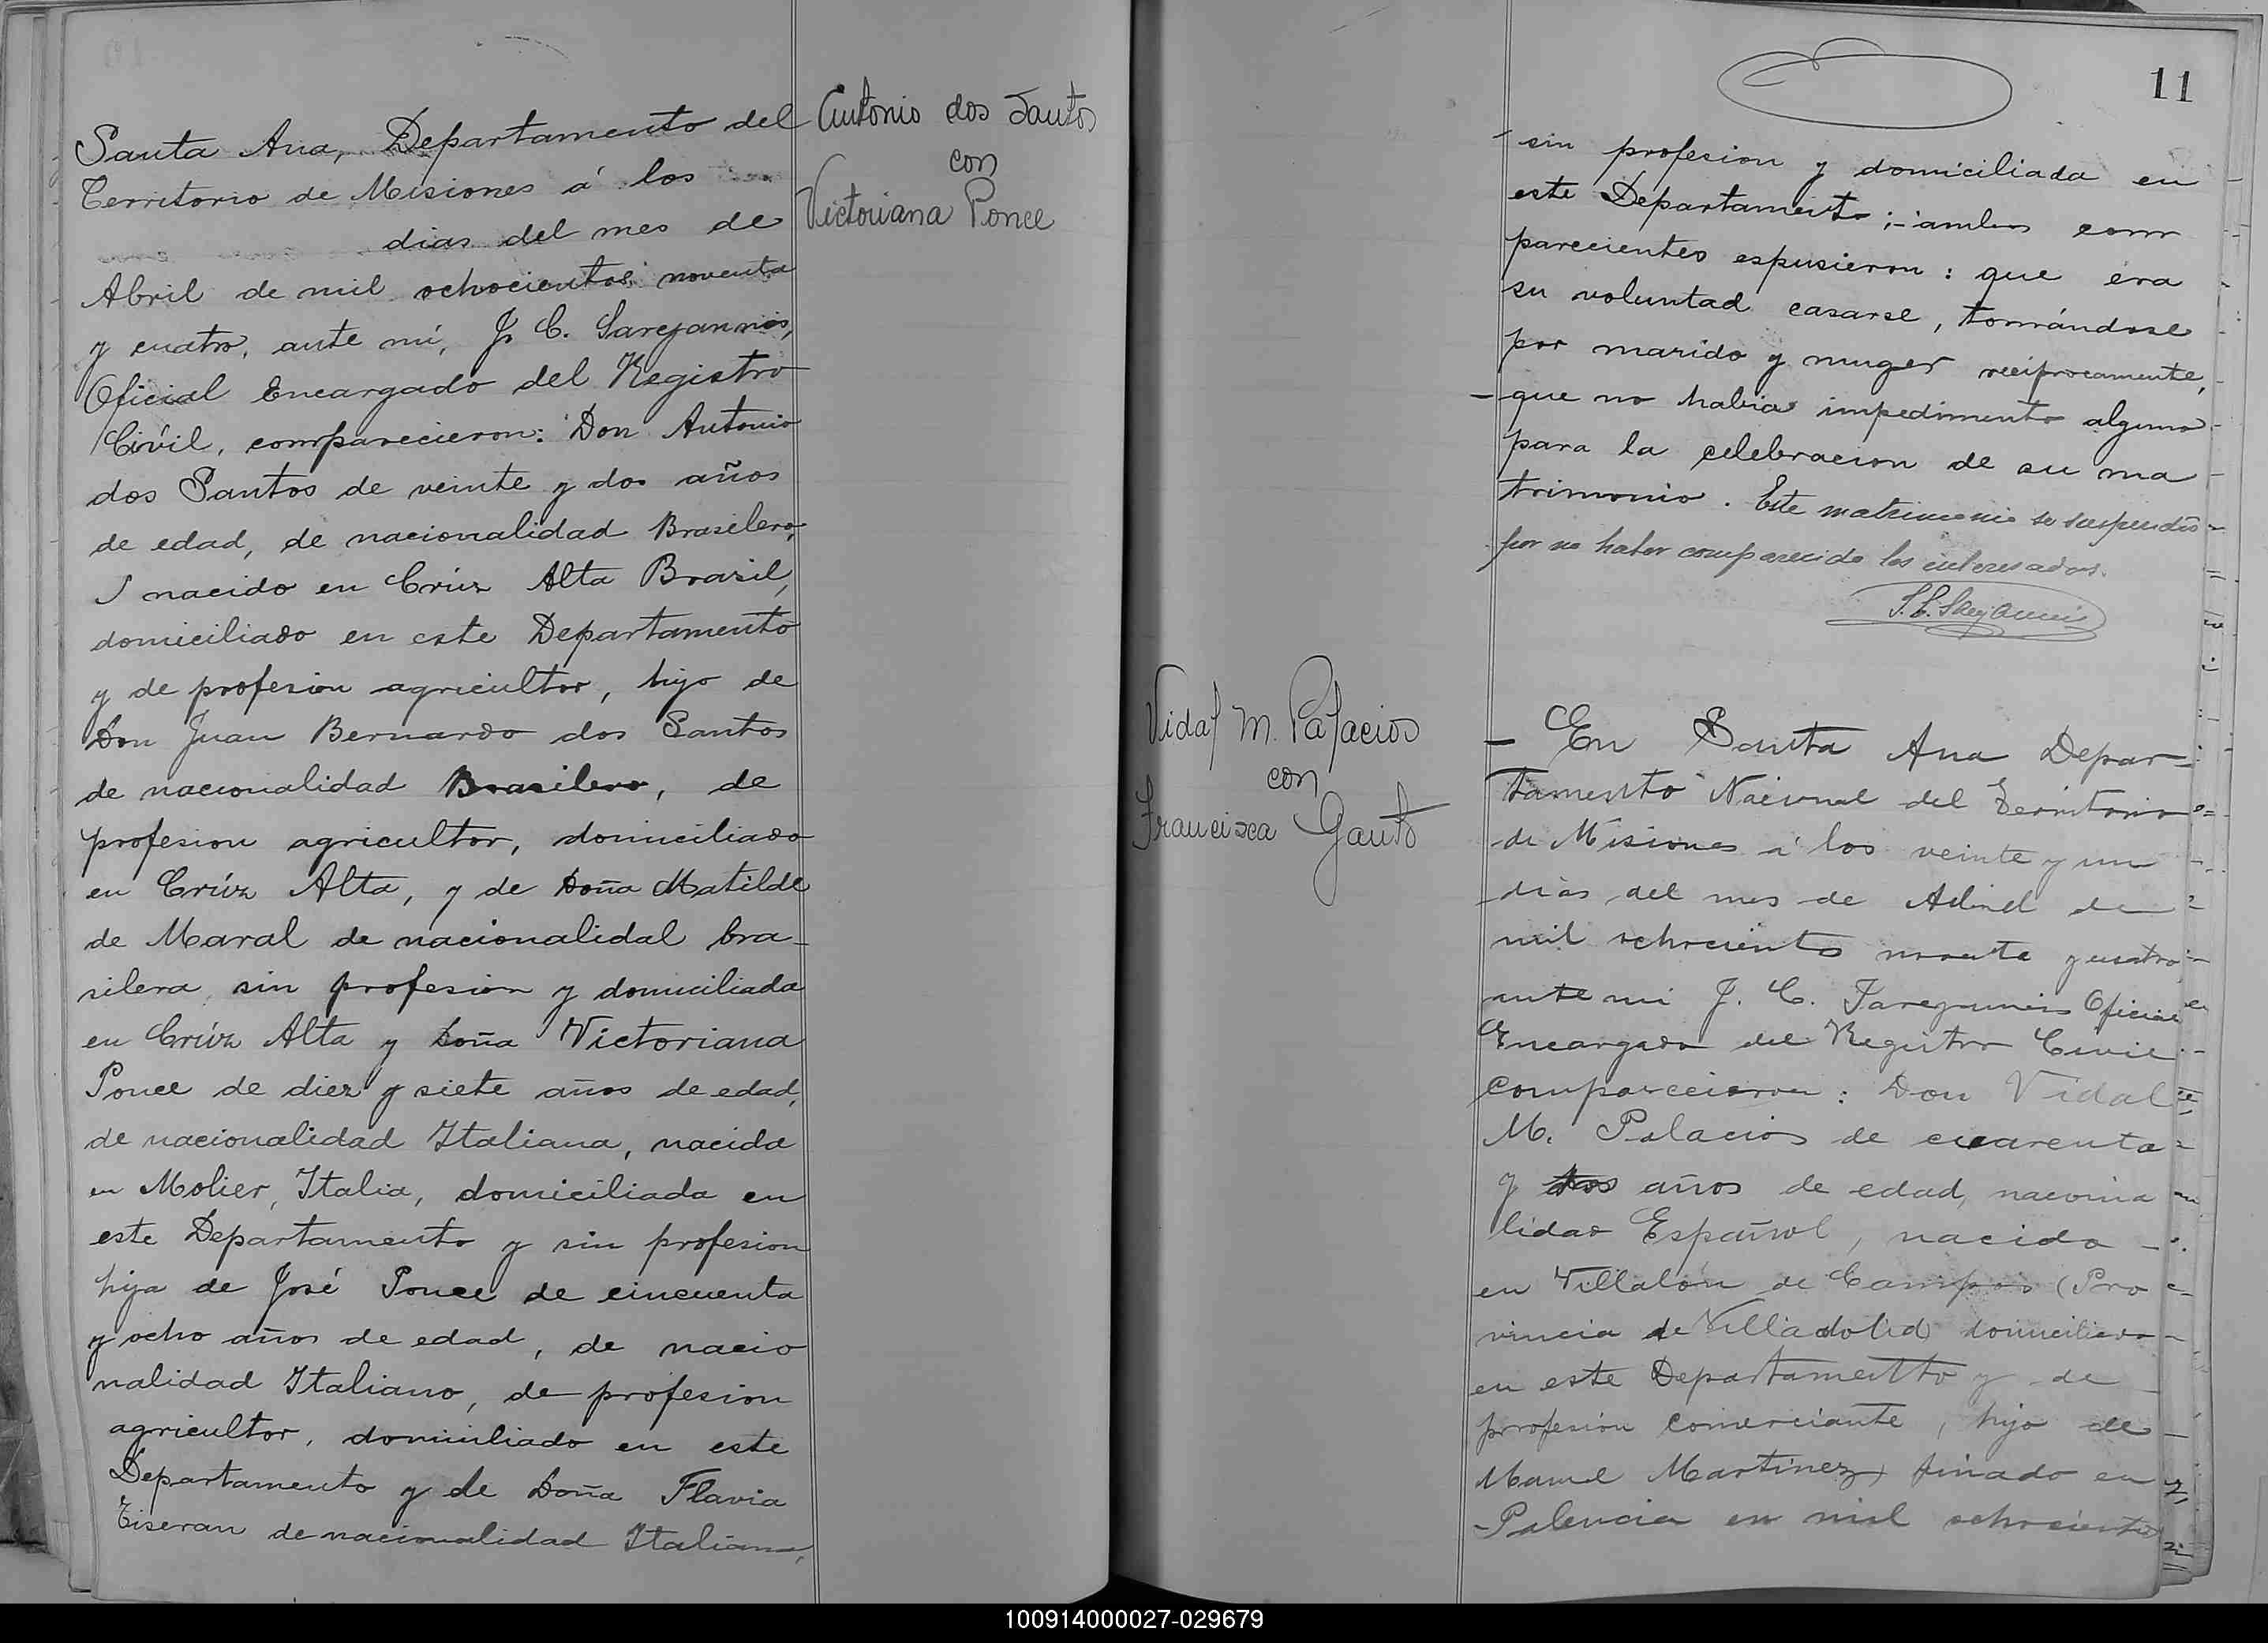 Santa Ana, Departamento del
Territorio de Misiones á los
dias del mes de
Abril de mil ochocientos noventa
y cuatro, ante mí, J. C. Sareyannis,
Oficial Encargado del Registro
Civil, comparecieron: Don Antonio
dos Santos de veinte y dos años
de edad, de nacionalidad Brasilero,
nacido en Crúz Alta Brazil,
domiciliado en este Departamento
y de profesion agricultor, hijo de
Don Juan Bernardo dos Santos
de nacionalidad Brasilero, de
profesion agricultor, domiciliado
en Crúz Alta, y de Doña Matilde
de Maral de nacionalidal bra-
silera, sin profesion y domiciliada
en Crúz Alta y Doña Victoriana
Ponce de diez y siete años de edad,
de nacionalidad Italiana, nacida
en Molier, Italia, domiciliada en
este Departamento y sin profesion
hija de José Ponce de cincuenta
y ocho años de edad, de nacio
nalidad Italiano, de profesion
agricultor, domiciliado en este
Departamento y de Doña Flavia
Tiseran de nacionalidad Italiana,
Antonio dos Santos
con
Victoriana Ponce
11
sin profesion y domiciliada en
este Departamento;- ambos com
parecientes espusieron: que era
su voluntad casarse, tomándose
por marido y muger reciprocamente,
- que no habia impedimento alguno
para la celebracion de su ma
trimonio. Este matrimonio se suspendió
por no haber comparecido los interesados.
Vidal M. Palacios
con
Francisca Gauto
- En Santa Ana Depar-
tamento Nacional del Territorio
de Misiones á los veinte y un
dias del mes de Abril de
mil ochocientos noventa y cuatro,
ante mi J. C. Sareyannis Oficial
Encargado del Registro Civil
comparecieron: Don Vidal
M. Palacios de cuarenta
y dos años de edad, naciona
lidad Español, nacido -
en Villalón de Campos (Pro
vincia de Villadolid) domiciliado
en este Departamento y de
profesion comerciante, hijo de
Manuel Martinez, finado en
-Palencia en mil ochocientos
100914000027-029679